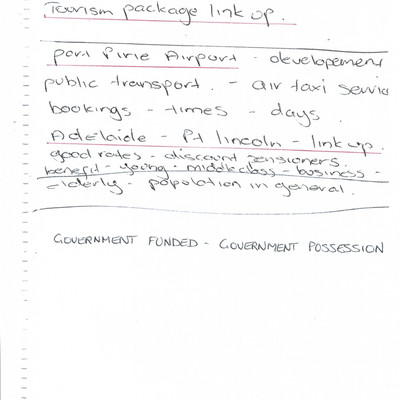 Tourism package link up.
port Pirie Airport - developement
public transport. - air taxi servic
bookings - times - days.
Adelaide - Pt lincoln - link up.
good rates - discount pensioners.
benefit - young - middle class - business -
elderly - population in general.
GOVERNMENT FUNDED - GOVERNMENT POSSESSION